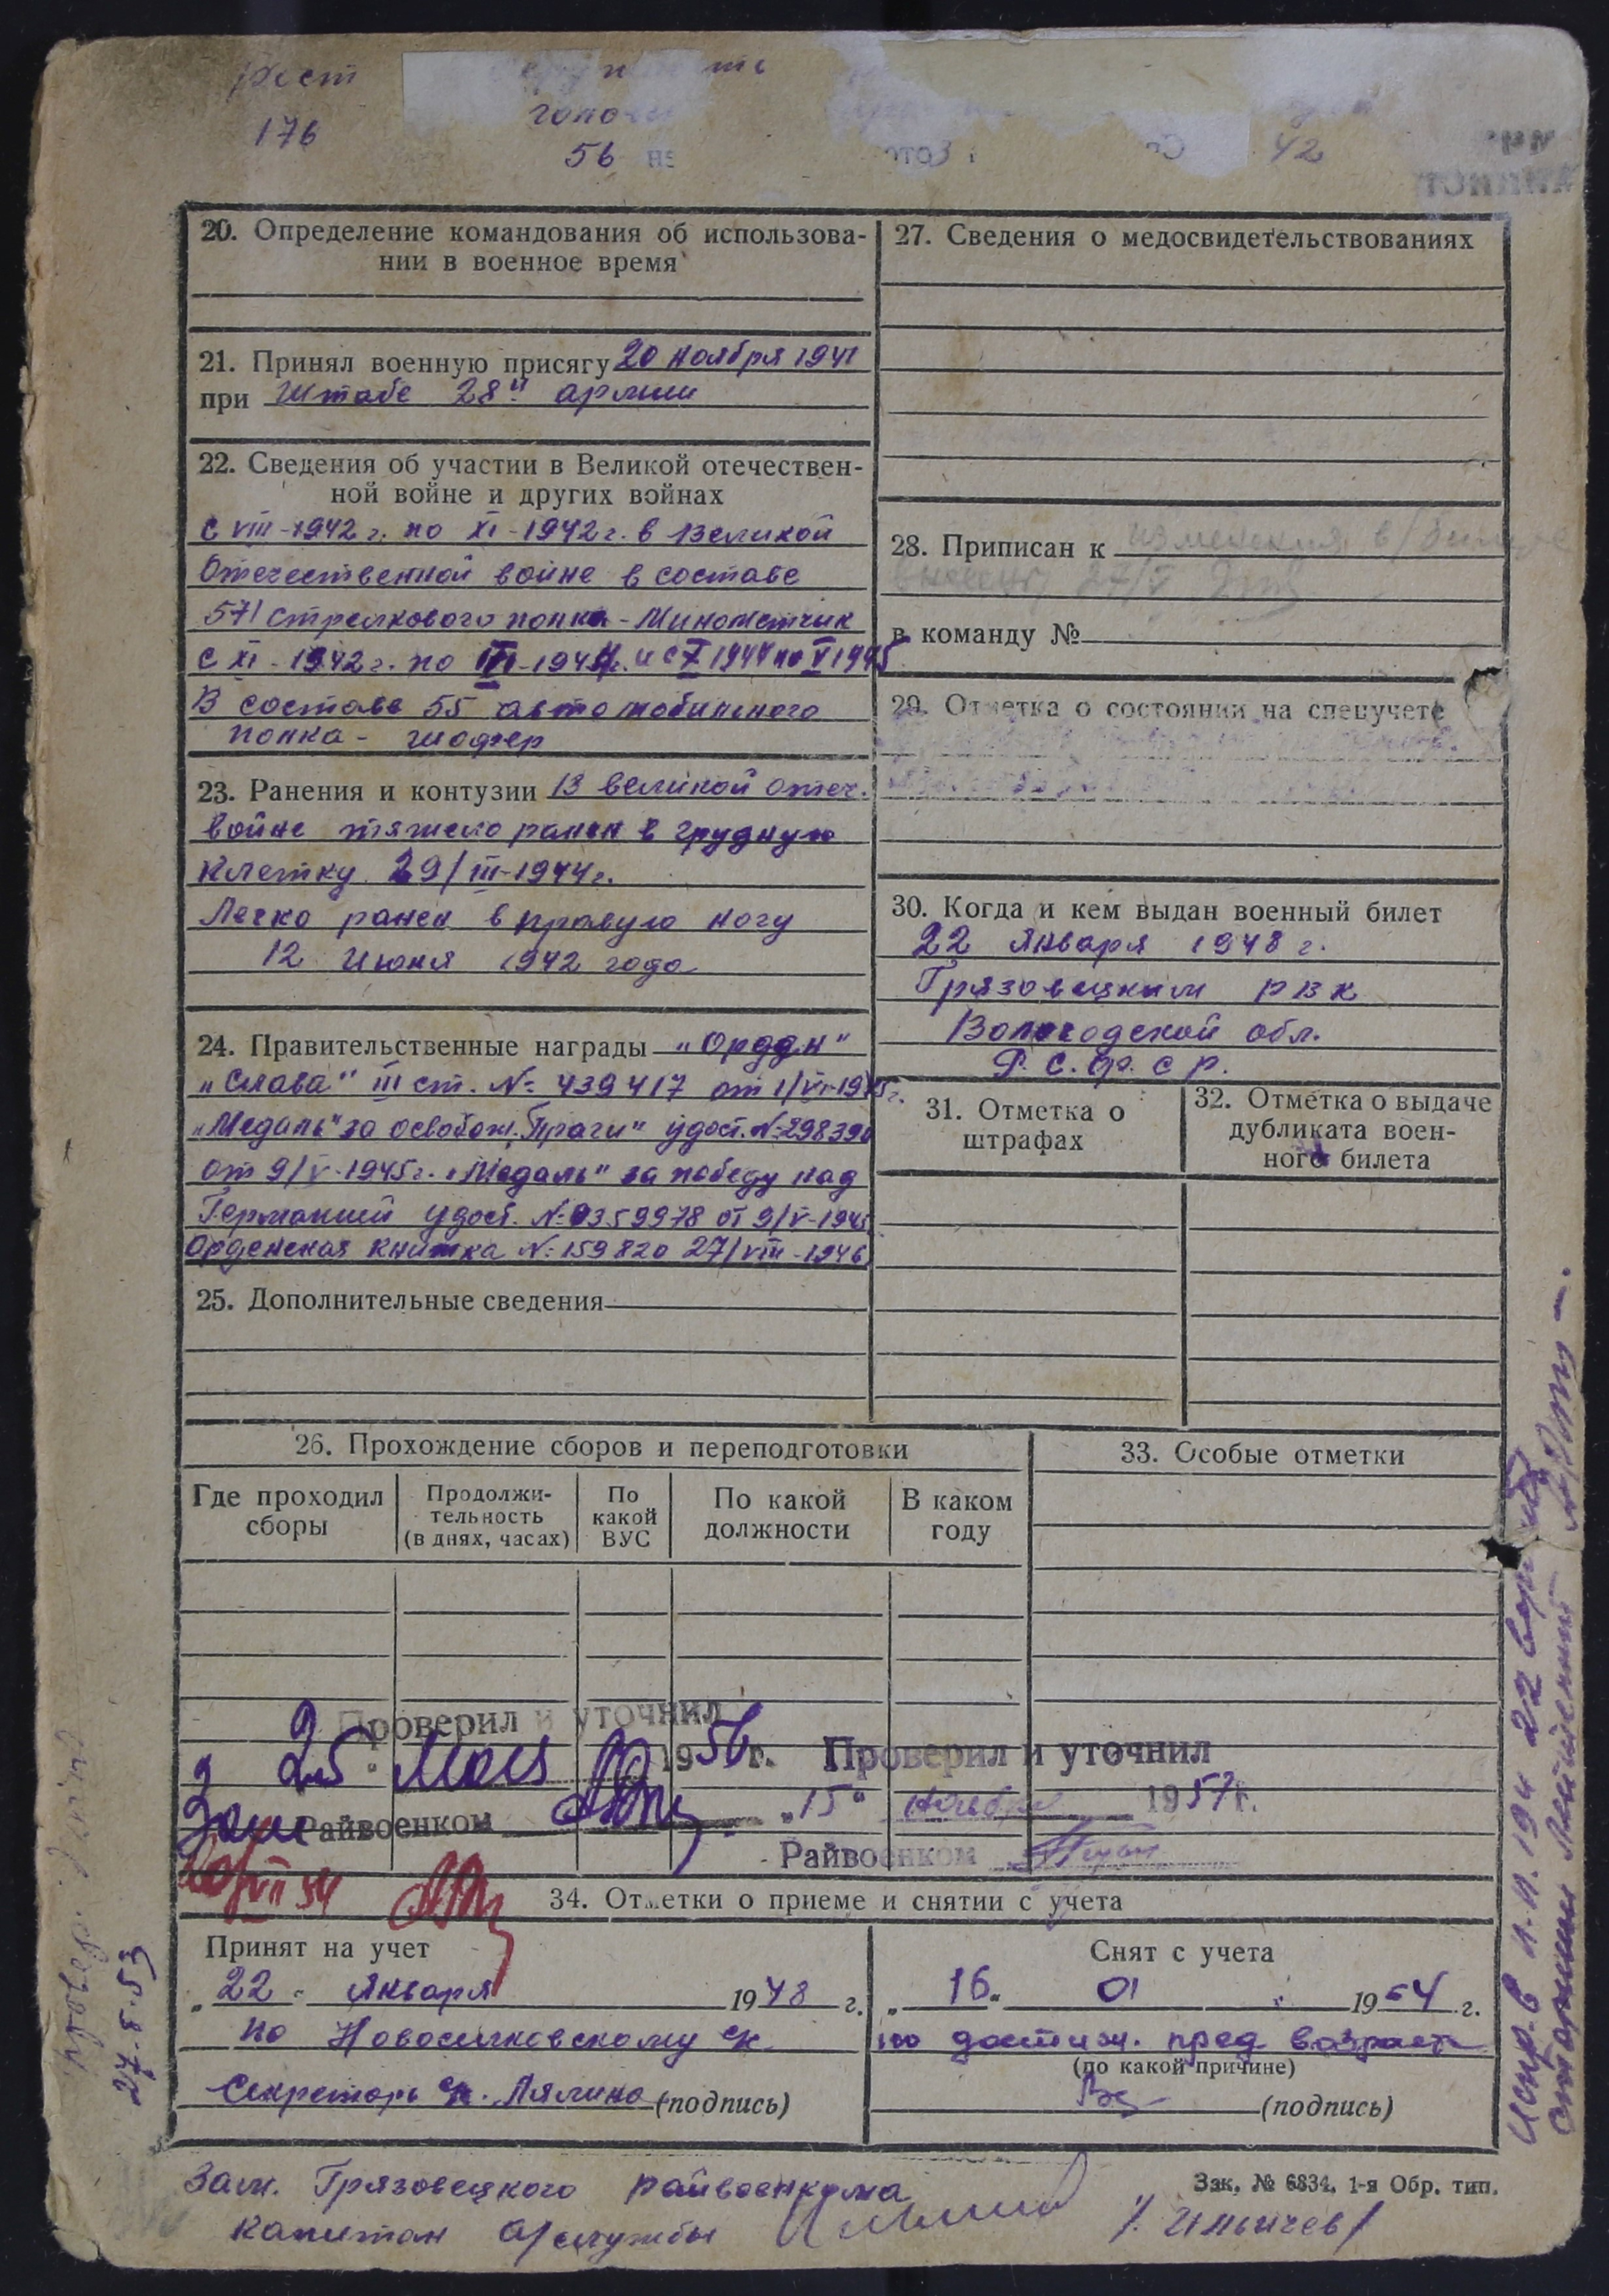 Рост
176
56
42
20. Определение командования об использова-
нии в военное время
21. Принял военную присягу 20 ноября 1941
при Штабе 28й армии
22. Сведения об участии в Великой отечествен-
ной войне и других войнах
с VIII-1942 г. по XI-1942 г. в Великой
Отечественной войне в составе
571 стрелкового полка - Минометчик
с XI-1942 г. по III-1944 г. и с X 1944 по V 1945
В составе 55 автомобильного
полка - шофер
23. Ранения и контузии В великой отеч.
войне тяжело ранен в грудную
клетку 29/III-1944 г.
Легко ранен в правую ногу
12 июня 1942 года
24. Правительственные награды "Орден"
"Слава" III ст. № 439417 от 1/VI-1945 г.
"Медаль" за освобож. Праги" удост. № 298390
от 9/V-1945 г. "Медаль" за победу над
Германией удост. № 0359978 от 9/V-1945
Орденская книжка № 159820 27/VIII-1946
25. Дополнительные сведения
27. Сведения о медосвидетельствованиях
28. Приписан к изменения в/билете
внесены 27/V
в команду №
29. Отметка о состоянии на спецучете
30. Когда и кем выдан военный билет
22 января 1948 г.
Грязовецким РВК
Вологодской обл.
Р.С.Ф.С.Р.
31. Отметка о
штрафах
32. Отметка о выдаче
дубликата воен-
ного билета
26. Прохождение сборов и переподготовки
Где проходил
сборы
Продолжи-
тельность
(в днях, часах)
По
какой
ВУС
По какой
должности
В каком
году
33. Особые отметки
Проверил и уточнил
25 Мая 1956 г.
Зам Райвоенком
Проверил и уточнил
"15" ноября 1957 г.
Райвоенком
20/VII 54
34. Отметки о приеме и снятии с учета
Принят на учет
"22" Января 1948 г.
по Новосельковскому с/с
Секретарь с/с. Лялина (подпись)
Снят с учета
"16" 01 1964 г.
по достиж. пред возраст
(по какой причине)
(подпись)
Зам. Грязовецкого райвоенкома
капитан а/службы /Ильичев/
Зак. № 6834. 1-я Обр. тип.
27-8-53
Испр. в п.п. 194 22 верить